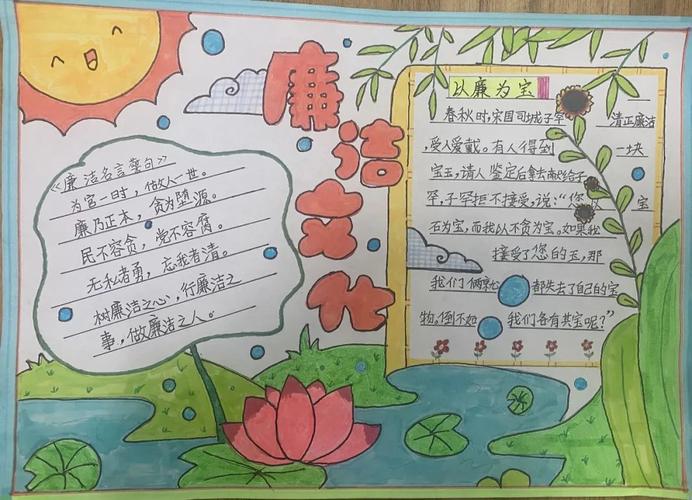 廉洁文化
《廉洁名言警句》
为官一时，做人一世。
廉乃正本，贪为堕源。
民不容贪，党不容腐。
无私者勇，忘我者清。
树廉洁之心，行廉洁之
事，做廉洁之人。
以廉为宝
春秋时，宋国司城子罕 清正廉洁
，受人爱戴。有人得到 一块
宝玉，请人鉴定后拿去献给子
罕，子罕拒不接受，说：“您 宝
石为宝，而我以不贪为宝。如果我
接受了您的玉，那
我们俩就 都失去了自己的宝
物。倒不如 我们各有其宝呢？”